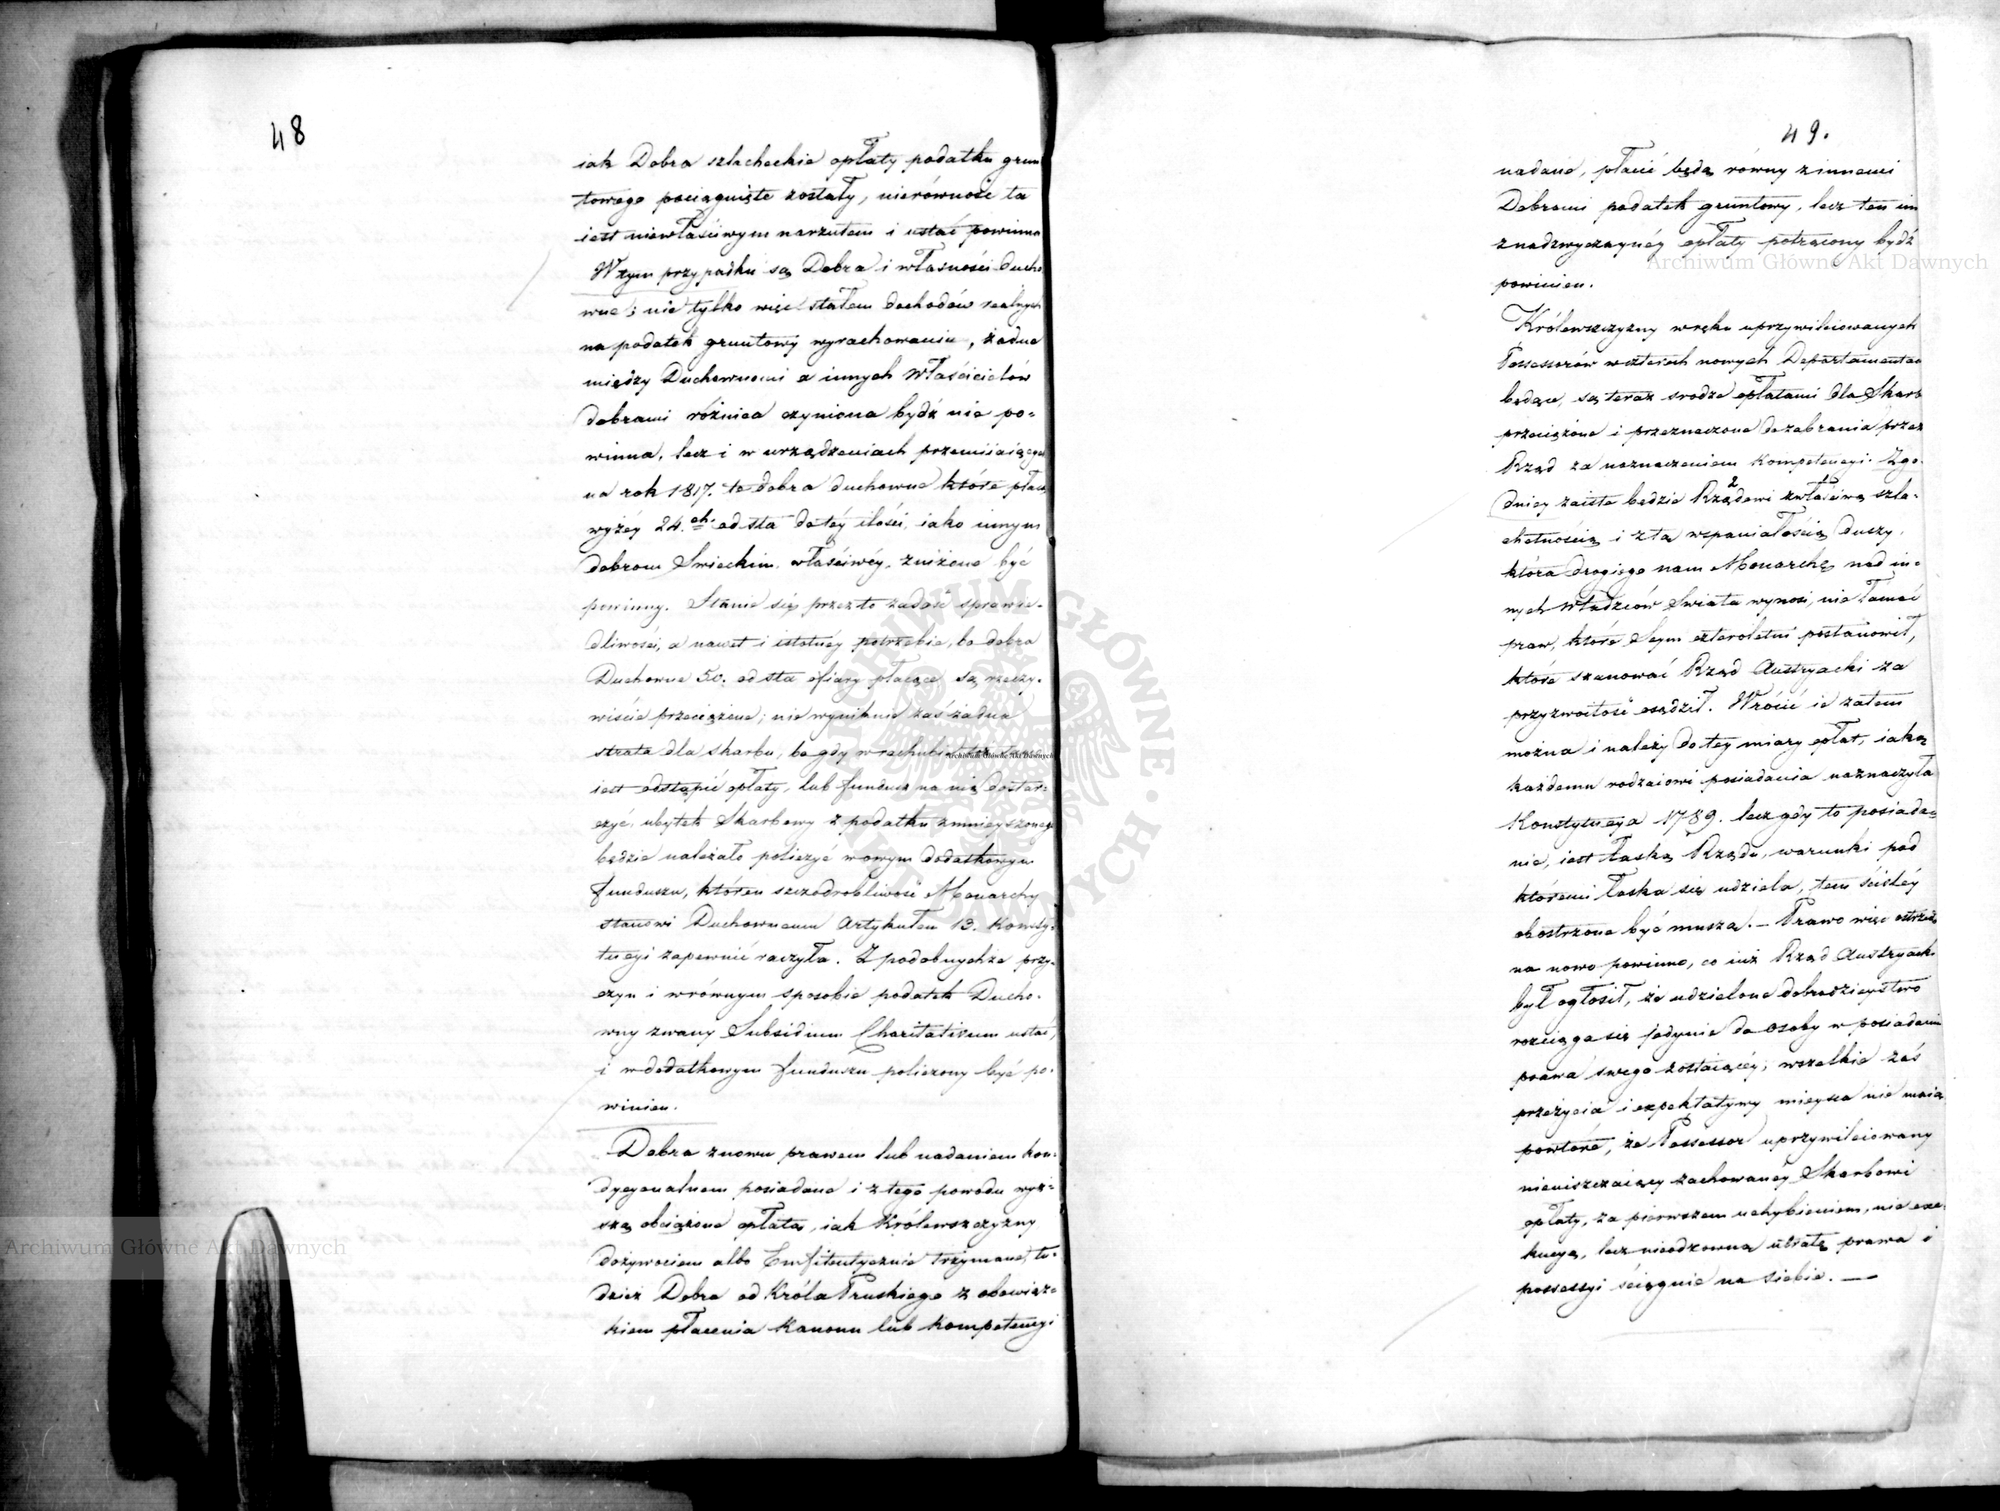 48
iak Dobra szlacheckie opłaty podatku grun
towego pociągnięte zostały, nierówność ta
iest niewłaściwym narzutem i ustać powinna
W tym przypadku są Dobra i własności Ducho
wne; nie tylko więc stałem dochodów realnych
na podatek gruntowy wyrachowaniu, żadna
między Duchownemi a innych Właścicielów
dobrami różnica czyniona bydź nie po=
winna, lecz i w urządzeniach przemiiaiących
na rok 1817. te dobra duchowne które płacą
wyżéy 24.ch od sta do téy ilości, iako innym
dobrom Swieckim, właściwéy, zniżone być
powinny. Stanie się przez to zadość sprawie=
dliwości, a nawet i istotnéy potrzebie, bo dobra
Duchowne 50. od sta ofiary płacące są rzeczy=
wiście przeciążone; nie wyniknie zaś żadna
strata dla skarbu, bo gdy w rachubie
iest odstąpić opłaty, lub fundusz na nią dostar=
czyć, ubytek Skarbowy z podatku zmnieyszonego
będzie należało policzyć w owym dodatkowym
funduszu, którem szczodrobliwość Monarchy
stanowi Duchownemu Artykułem 13. Konsty=
tucyi zapewnić raczyła. Z podobnychże przy=
czyn i w równym sposobie podatek Ducho=
wny zwany Subsidium Charitativum ustać,
i w dodatkowym funduszu policzony być po=
winien.
Dobra znowu prawem lub nadaniem kon=
dycyonalnem posiadane i z tego powodu wyż=
szą obciążone opłatą, iak Królewszczyzny
dożywociem albo Emfiteutycznie trzymane, tu=
dzież Dobra od Króla Pruskiego z obowiąz=
kiem płacenia Kanonu lub Kompetencyi
49.
nadane, płacić będą równy z innemi
Dobrami podatek gruntowy, lecz ten im
z nadzwyczaynéy opłaty potrącony bydź
powinien.
Królewszczyzny w ręku uprzywileiowanych
Possessorów w czterech nowych Departamentach
będące, są teraz srodze opłatami dla Skarbu
przeciążone i przeznaczone do zabrania przez
Rząd za naznaczeniem Kompetencyi. Zgo=
dniey zaiste będzie Rządowi z właściwą szla=
chetnością i z tą wspaniałością duszy,
która drogiego nam Monarchę nad in=
nych Władzców Swiata wynosi, nie łamać
praw, które Seym czteroletni postanowił,
które szanować Rząd Austryacki za
przyzwoitość osądził. Wrócić ie zatem
można i należy do tey miary opłat, iaką
każdemu rodzaiowi posiadania naznaczyła
Konstytucya 1789. lecz gdy to posiada=
nie, iest łaską Rządu, warunki pod
któremi łaska się udziela, tem ściśléy
obostrzone być muszą. – Prawo więc ostrzedz
na nowo powinno, co iuż Rząd Austryacki
był ogłosił, że udzielone dobrodzieystwo
rozciąga się jedynie do osoby w posiadaniu
prawa swego zostaiącéy; wszelkie zaś
przeżycia i expektatywy mieysca nie maią
powtóre, że Possessor uprzywileiowany
nieuiszczaiący zachowanéy Skarbowi
opłaty, za pierwszem uchybieniem, nie exe=
kucyą, lecz nieodzowną utratę prawa i
possessyi ściągnie na siebie. —
Archiwum Główne Akt Dawnych
Archiwum Główne Akt Dawnych
Archiwum Główne Akt Dawnych
ARCHIWUM GŁÓWNE AKT DAWNYCH